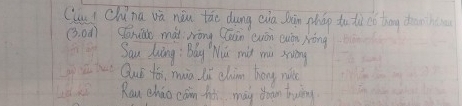 Câu 1 Chỉ ra và nêu tác dụng của biện pháp tu từ có trong đoạn thơ sau
(3.0đ) mát, sóng cuồn cuộn sóng
Sau lưng: Bảy Núi mịt mù sương
Quê tôi, mùa lũ chìm trong nước
Rau cháo cầm hơi... mấy đoạn trường.